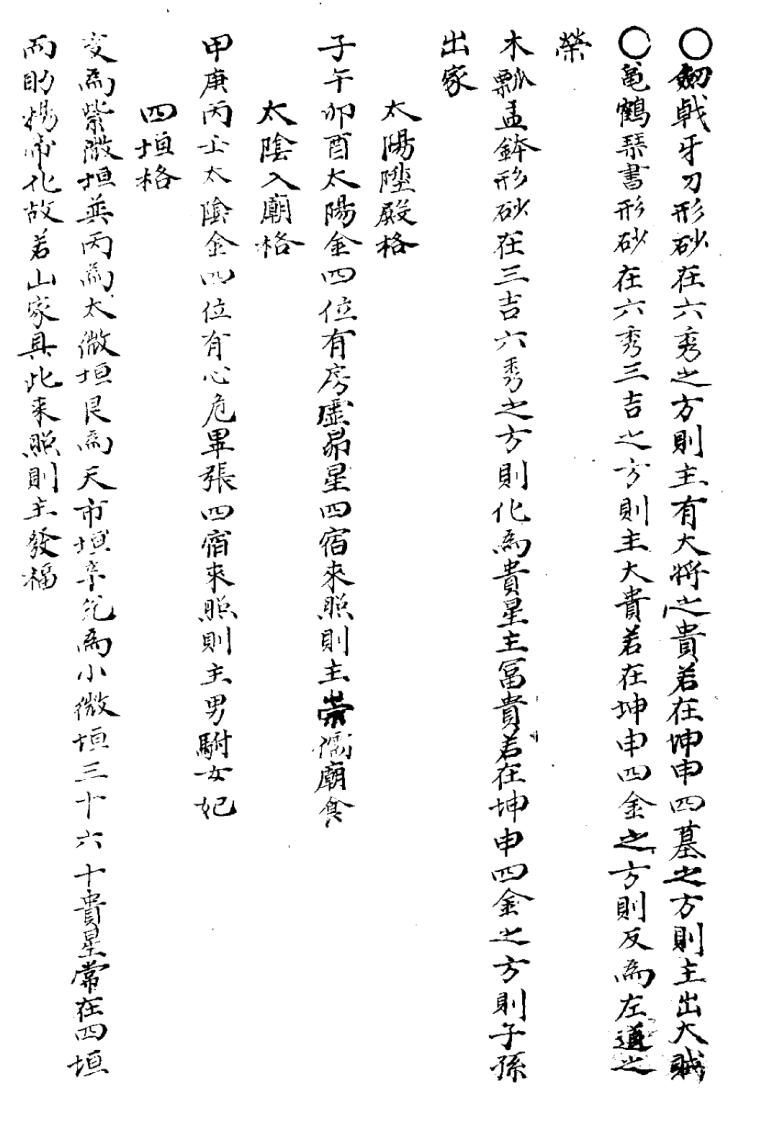 ○劒戟牙刀形砂在六秀之方則主有大將之貴若在坤申四墓之方則主出大賊
○亀鶴琴書形砂在六秀三吉之方則主大貴若在坤申四金之方則反爲左道之
榮
木瓢盂鉢形砂在三吉六秀之方則化爲貴星主冨貴若在坤申四金之方則子孫
出家
太陽陞殿格
子午卯酉太陽金四位有房虛昴星四宿來照則主崇儒廟食
太陰入廟格
甲庚丙壬太陰金四位有心危畢張四宿來照則主男駙女妃
四垣格
亥爲紫微垣巽丙爲太微垣艮爲天市垣辛兌爲小微垣三十六十貴星常在四垣
而助揚帝化故若山家具此來照則主發福